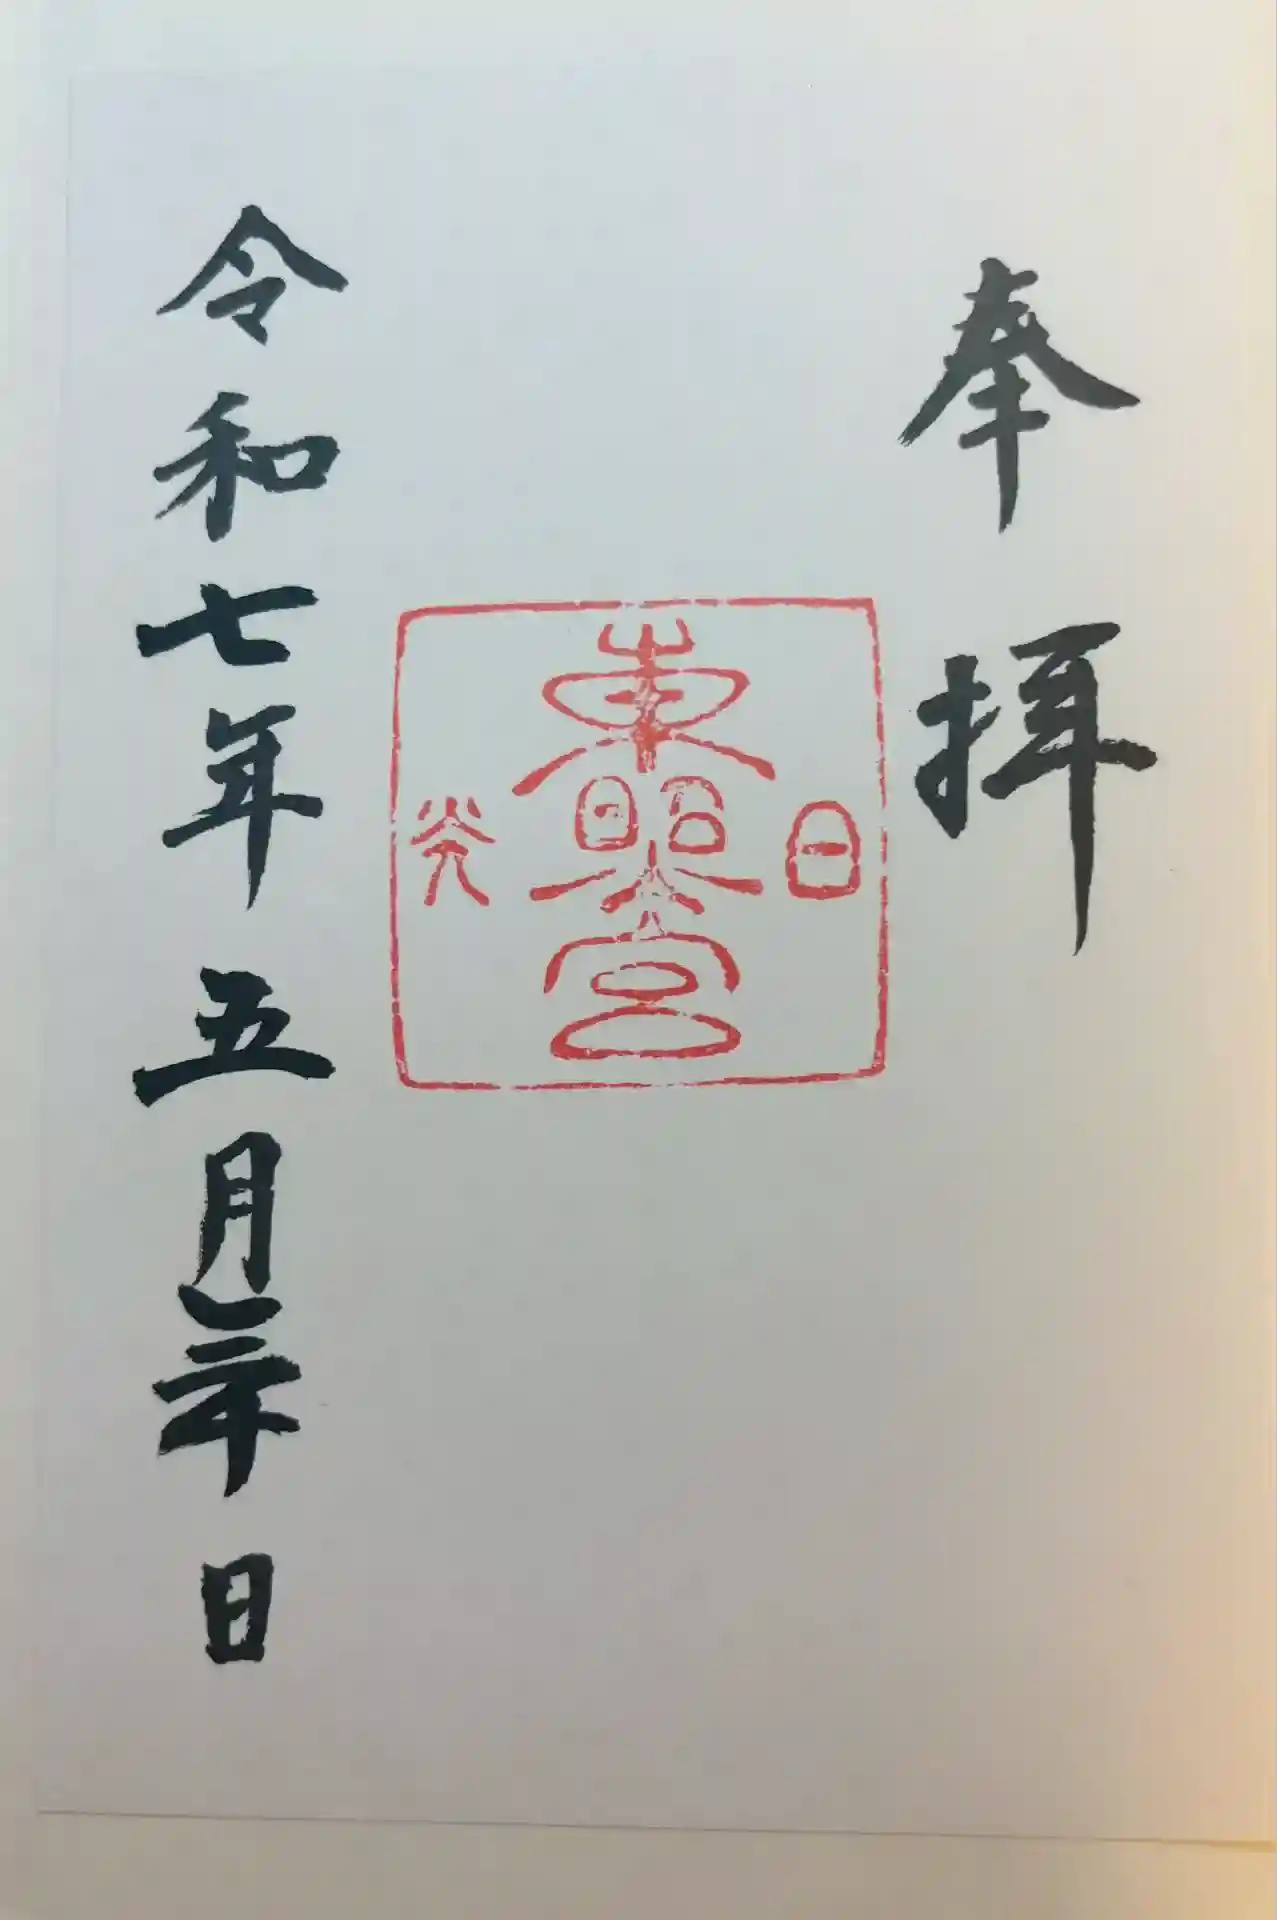 奉拝
日光
東照宮
令和七年五月三十日